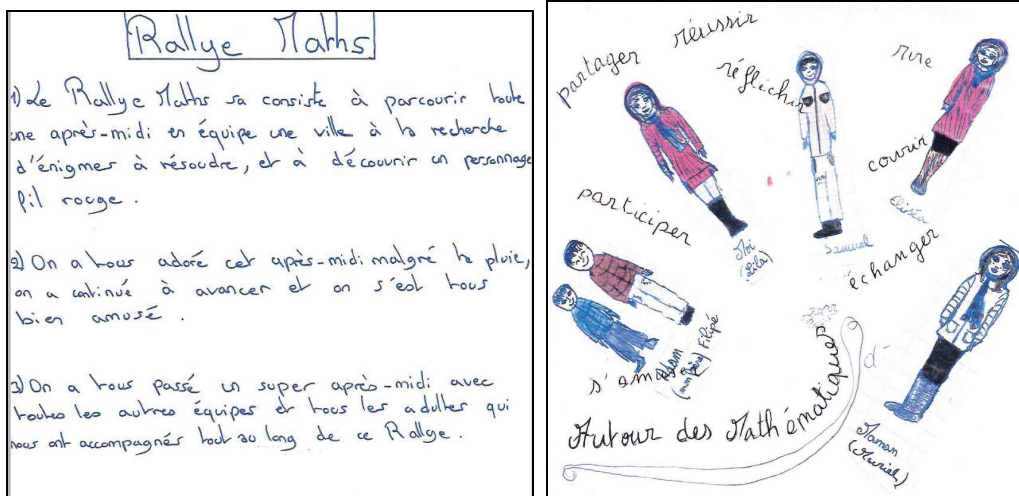 Rallye Maths
1) Le Rallye Maths sa consiste à parcourir toute
une après-midi en équipe une ville à la recherche
d'énigmes à résoudre, et à découvrir un personnage
fil rouge.
2) On a tous adoré cet après-midi malgré la pluie,
on a continué à avancer et on s'est tous
bien amusé.
3) On a tous passé un super après-midi avec
toutes les autres équipes et tous les adultes qui
nous ont accompagnés tout au long de ce Rallye.
partager
réussir
réfléchir
rire
courir
participer
échanger
s'amuser
Moi
(Lila)
Samuel
Adam
(mon frère)
Filipé
Maman
(Muriel)
Autour des Mathématiques